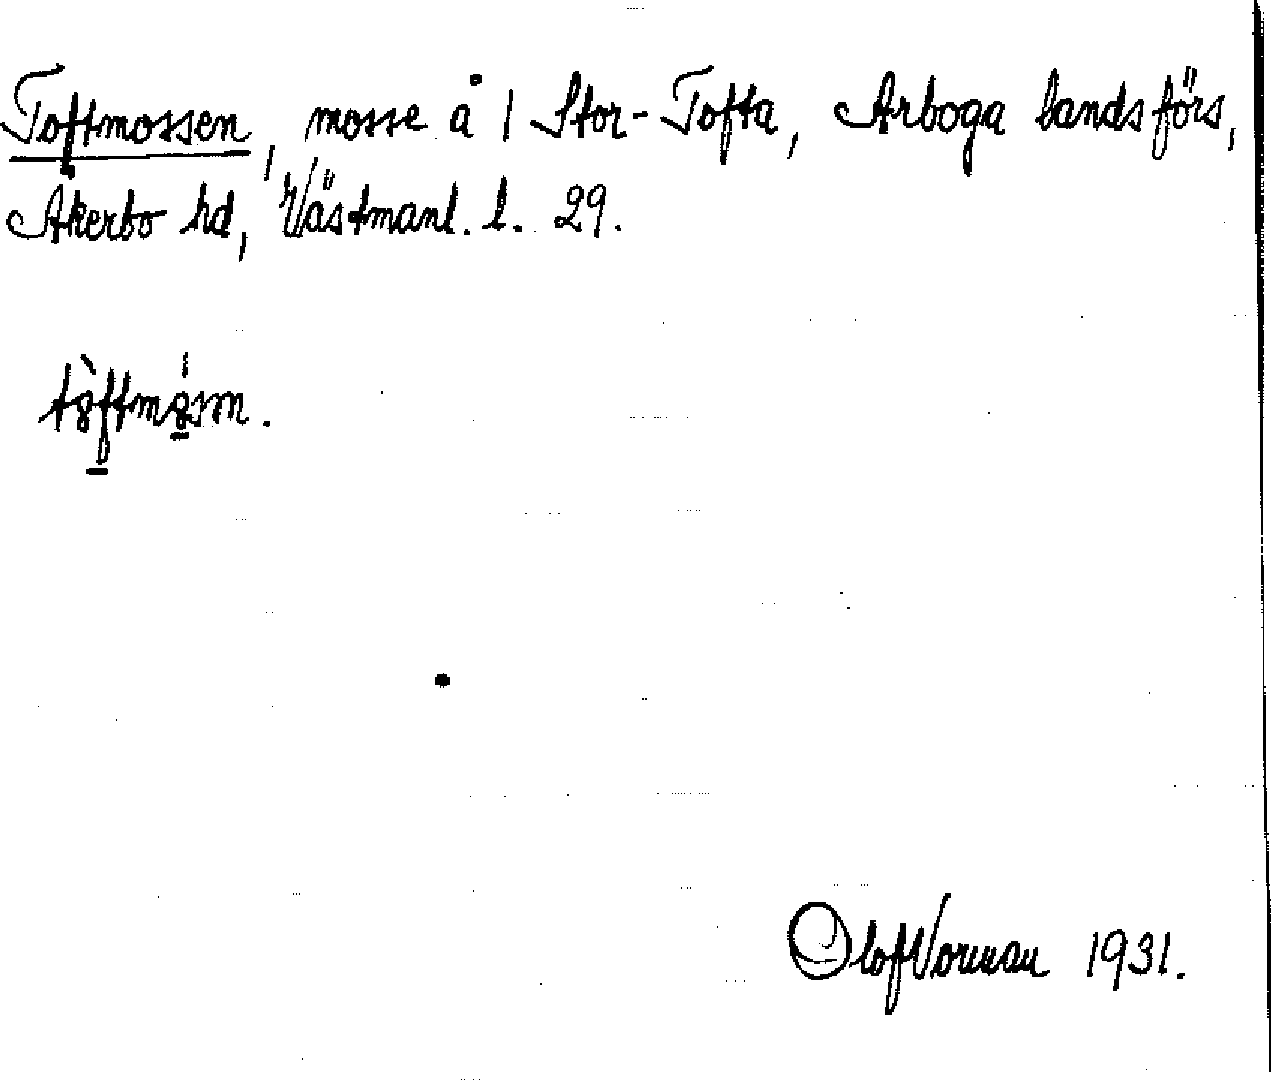 Toftmossen, mosse å 1 Stor-Tofta, Arboga landsförs,
Åkerbo hd, Västmanl. l. 29.
Olof Vorman 1931.